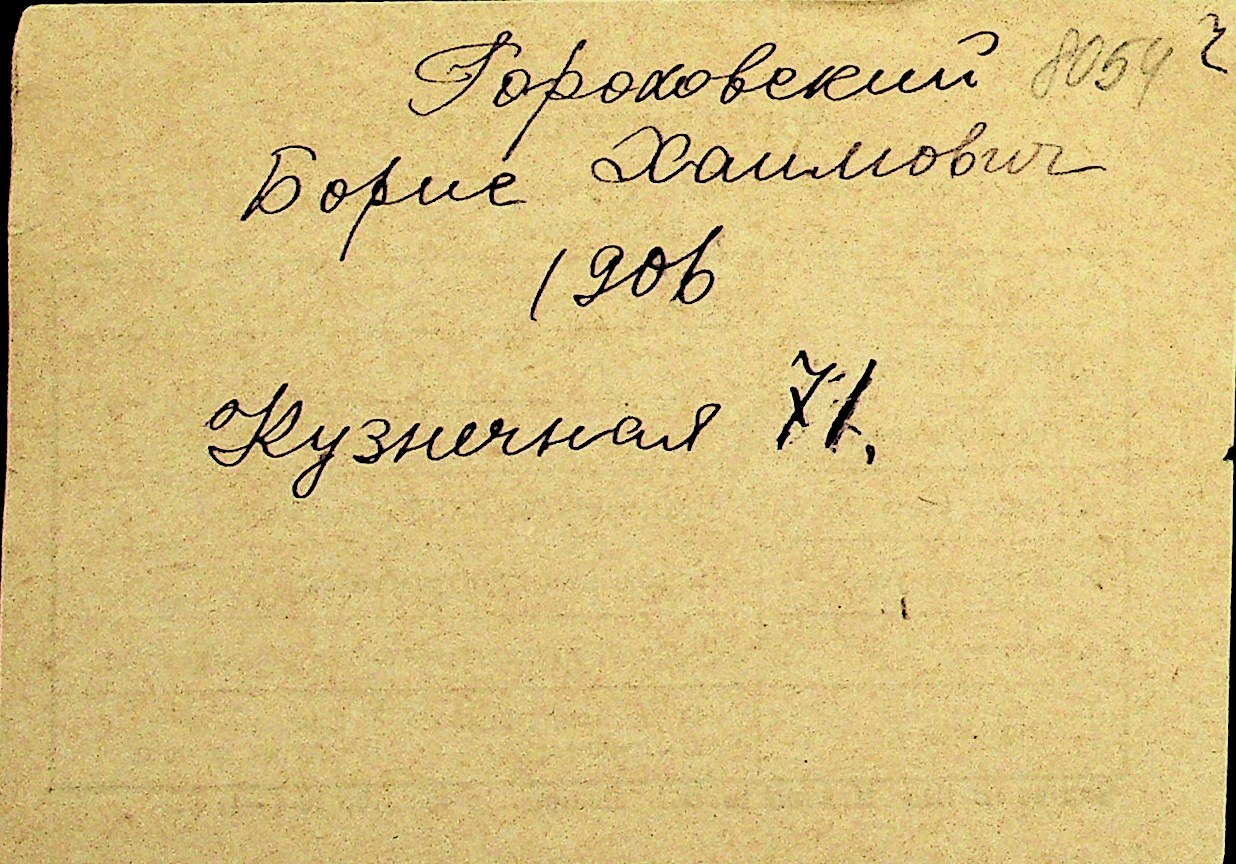 Гороховский 8054
Борис Хаимович
1906
Кузнечная 71,